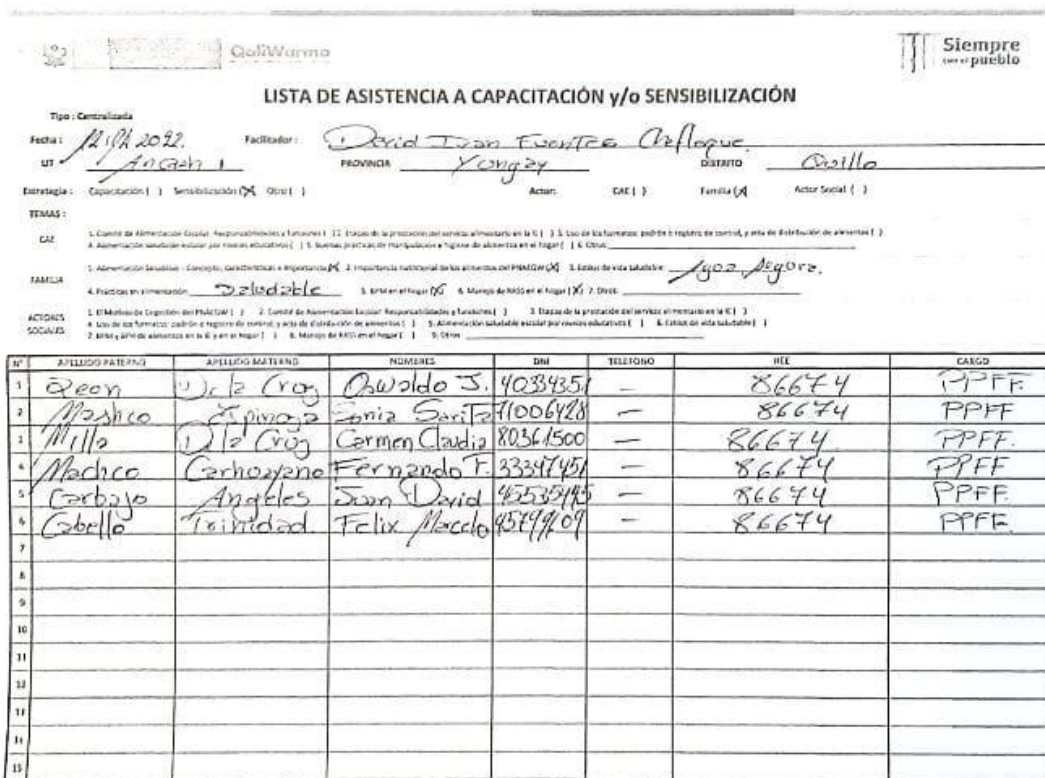 QaliWarma
Siempre
con el pueblo
LISTA DE ASISTENCIA A CAPACITACIÓN y/o SENSIBILIZACIÓN
Tipo : Centralizada
Fecha : Facilitador : David Ivan Fuentes Chafloque
UT Ancash 1 PROVINCIA Yungay DISTRITO Quillo
Estrategia : Capacitación ( ) Sensibilización (X) Otro ( ) Actor: CAE ( ) Familia (X) Actor Social ( )
TEMAS :
CAE
1. Comité de Alimentación Escolar: Responsabilidades y funciones ( ) 2. Etapas de la prestación del servicio alimentario en la IE ( ) 3. Uso de los formatos: padrón o registro de control, y acta de distribución de alimentos ( )
4. Alimentación saludable escolar por niveles educativos ( ) 5. Buenas prácticas de manipulación e higiene de alimentos en el hogar ( ) 6. Otros:
FAMILIA
1. Alimentación Saludable - Concepto, características e importancia (X) 2. Importancia nutricional de los alimentos del PNAEQW (X) 3. Estilos de vida saludable: Agua segura.
4. Prácticas en alimentación: Saludable 5. BPM en el hogar (X) 6. Manejo de RRSS en el hogar (X) 7. Otros:
ACTORES SOCIALES
1. El Modelo de Cogestión del PNAEQW ( ) 2. Comité de Alimentación Escolar: Responsabilidades y funciones ( ) 3. Etapas de la prestación del servicio alimentario en la IE ( )
4. Uso de los formatos: padrón o registro de control, y acta de distribución de alimentos ( ) 5. Alimentación saludable escolar por niveles educativos ( ) 6. Estilos de vida saludable ( )
7. BPM y BPH de alimentos en la IE y en el hogar ( ) 8. Manejo de RRSS en el hogar ( ) 9. Otros
N° APELLIDO PATERNO APELLIDO MATERNO NOMBRES DNI TELEFONO IIEE CARGO
1 Leon De la Cruz Oswaldo J. 40334351 — 86674 PPFF.
2 Mashco Espinoza Sonia Sarita 71006428 — 86674 PPFF
3 Milla De la Cruz Carmen Claudia 80361500 — 86674 PPFF.
4 Machco Carhuayano Fernando F. 33347451 — 86674 PPFF
5 Carbajo Angeles Juan David — 86674 PPFF.
6 Cabello Trinidad. Felix Marcelo — 86674 PPFF.
7
8
9
10
11
12
13
14
15